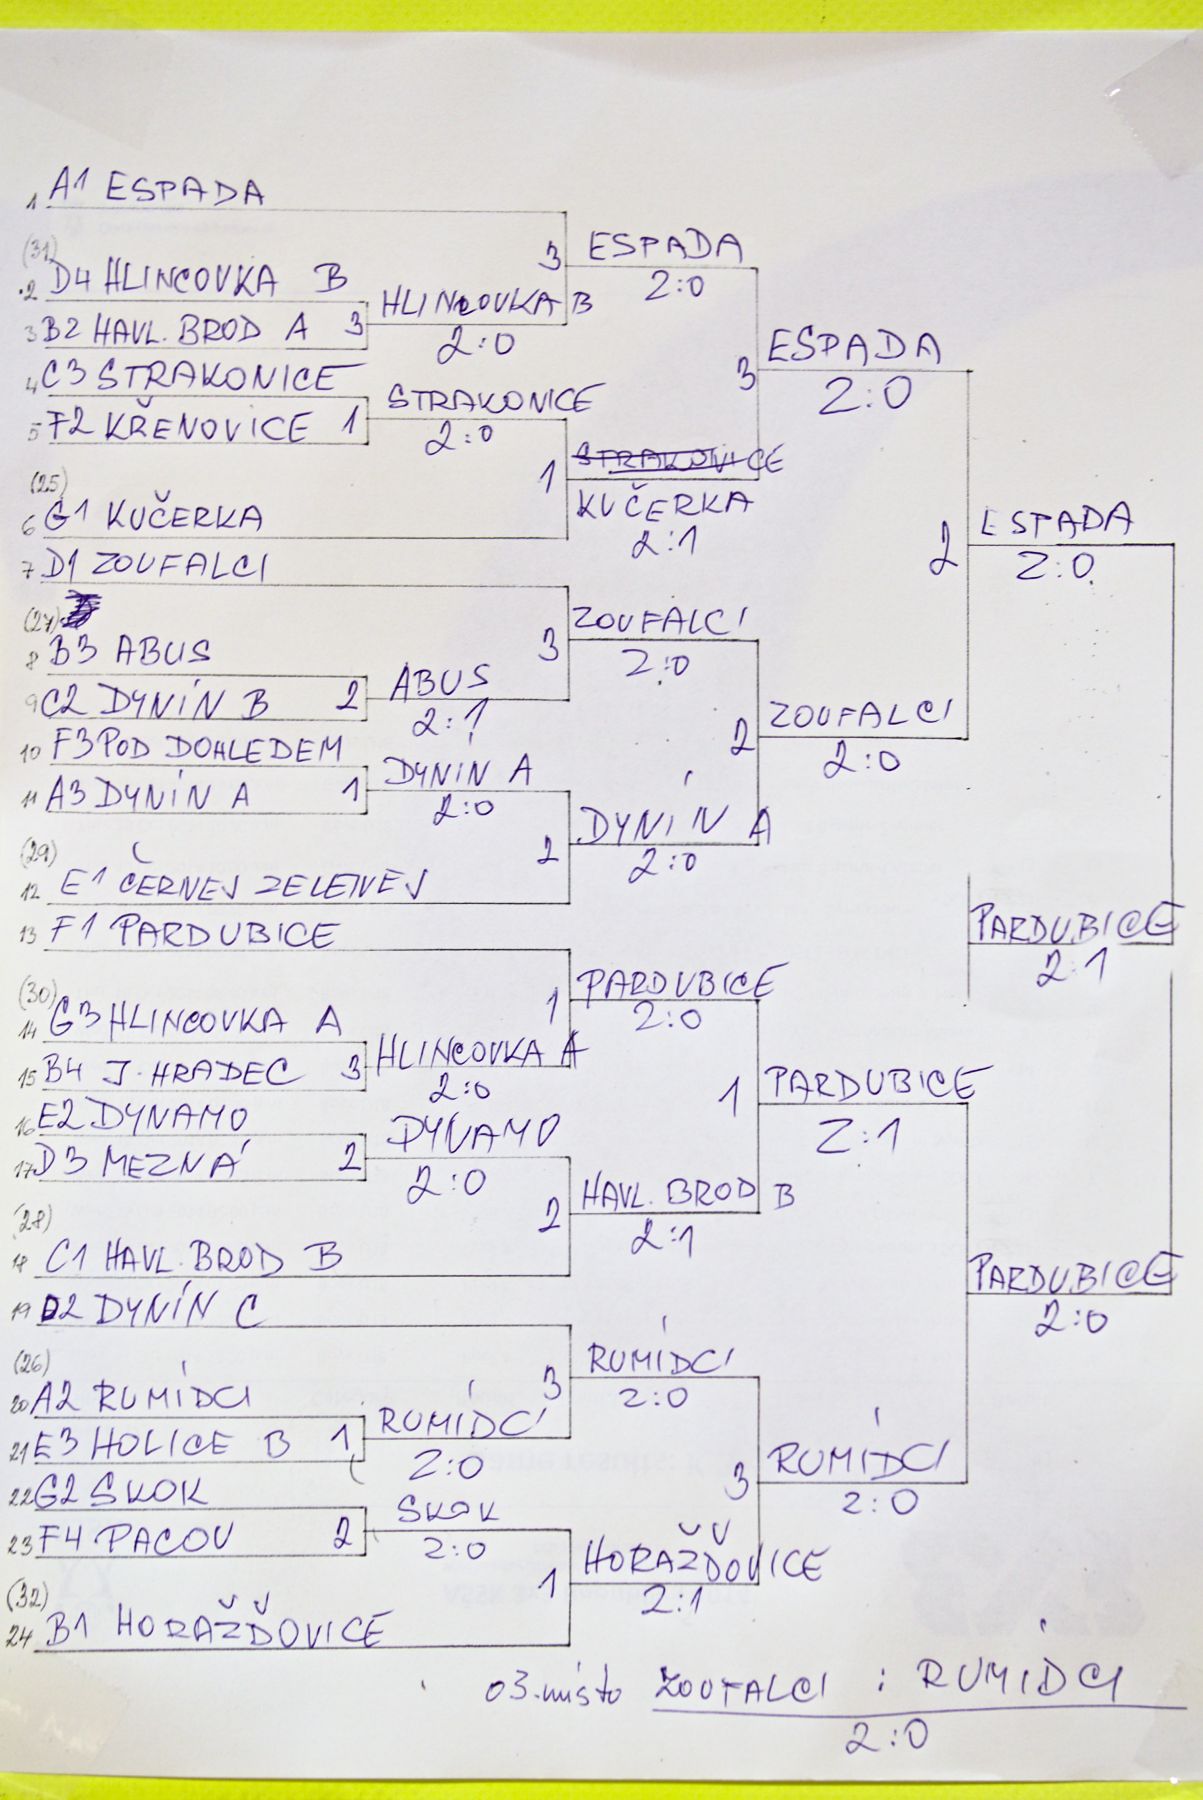 1 A1 ESPADA
3 ESPADA
(31)
2:0
2 D4 HLINCOVKA B
HLINCOVKA B
3 B2 HAVL. BROD A 3
2:0
ESPADA
4 C3 STRAKONICE
3
2:0
STRAKONICE
5 F2 KŘENOVICE 1
2:0
STRAKONICE
(25)
1
KUČERKA
6 G1 KUČERKA
2:1
ESPADA
2
2:0
7 D1 ZOUFALCI
(27)
ZOUFALCI
8 B3 ABUS
3
2:0
ABUS
9 C2 DYNÍN B 2
2:1
ZOUFALCI
10 F3 POD DOHLEDEM
2
2:0
DYNÍN A
11 A3 DYNÍN A 1
2:0
DYNÍN A
(29)
2
2:0
12 E1 ČERNEJ ZELENEJ
13 F1 PARDUBICE
PARDUBICE
2:1
(30)
PARDUBICE
1
2:0
14 G3 HLINCOVKA A
HLINCOVKA A
15 B4 J. HRADEC 3
2:0
PARDUBICE
1
2:1
16 E2 DYNAMO
DYNAMO
17 D3 MEZNÁ 2
2:0
HAVL. BROD B
(28)
2
2:1
18 C1 HAVL. BROD B
PARDUBICE
2:0
19 D2 DYNÍN C
(26)
RUMÍDCI
3
2:0
20 A2 RUMÍDCI
RUMÍDCI
21 E3 HOLICE B 1
2:0
RUMÍDCI
3
2:0
22 G2 SKOK
SKOK
23 F4 PACOV 2
2:0
HORAŽĎOVICE
(32)
1
2:1
24 B1 HORAŽĎOVICE
O 3. místo ZOUFALCI : RUMÍDCI
2:0